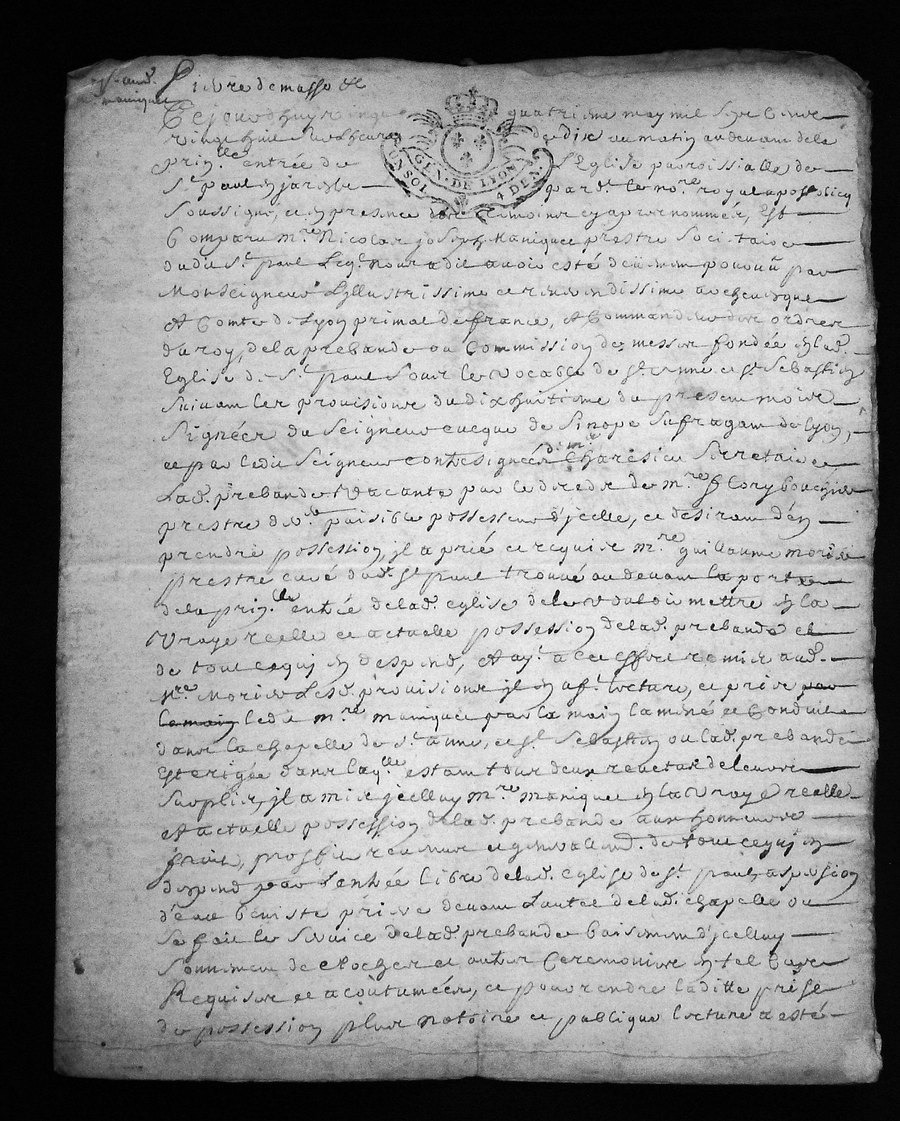 Ce jourdhuy vingt quatrieme may mil sept Cent
vingt huit heure de dix au matin audevant dela
prin.lle entrée de l'Eglise parroissialle de
St. paul par dt. le no.re royal apostolicq
soussigné, et en presence des temoins cy apres nommés, Est
Comparu m.re Nicolas joseph Maniquet prestre Socitaire
dudit St. paul Leq.l nous a dit avoir esté deüment pourvû par
Monseigneur L'jllustrissime et reverendissime archevesque
Et Comte de Lyon primat de france, et Commandeur des ordres
du roy, de la prebande ou Commission de messes fondée en lad.
Eglise de St. paul sous le vocable de ste anne et st. Sebastien
suivant les provisions du dixhuitieme du present mois
Signées du Seigneur eveque de Sinope Sufragant de Lyon,
et par ledit Seigneur contresignées Secretaire
Lad. prebande vacante par le decedz de m.re flory bouchier
prestre paisible possesseur d'jcelle, et desirant d'en
prendre possession, jl a prié et requis m.re guillaume
prestre curé dud. st. paul trouvé audevant la porte
de la prin.lle entrée de lad. eglise de le vouloir mettre en la
Vraye reelle et actuelle possession de lad. prebande et
de tout ce quj en despend, Et ay.t a cet effet remis aud.
M.re Lesd. provisions jl en a f.t lecture, et pris par
la main ledit m.re maniquet par la main la mené et Conduit
dans la chapelle de ste. anne, et st. Sebastien ou lad. prebande
Est erigée dans laq.lle estant tous deux revetus de leurs
Surplis, jl a mis jcelluy m.re maniquet en la Vraye reelle
Et actuelle possession de lad. prebande aux honneurs
fruits, proffits revenus et generallem.t de tout ce quj en
despend par L'entrée libre de lad. eglise de st. paul, aspersion
d'eau beniste priere devant Lautel de lad. chapelle ou
Se fait le Service de lad. prebande baisement d'jcelluy
Sonnement de Clocher et autres Ceremonies en tel Cas
Requises et acoutumées, et pour rendre laditte prise
de possession plus notoire et publique lecture a esté
GEN. DE LYON
UN SOL 4 DEN.